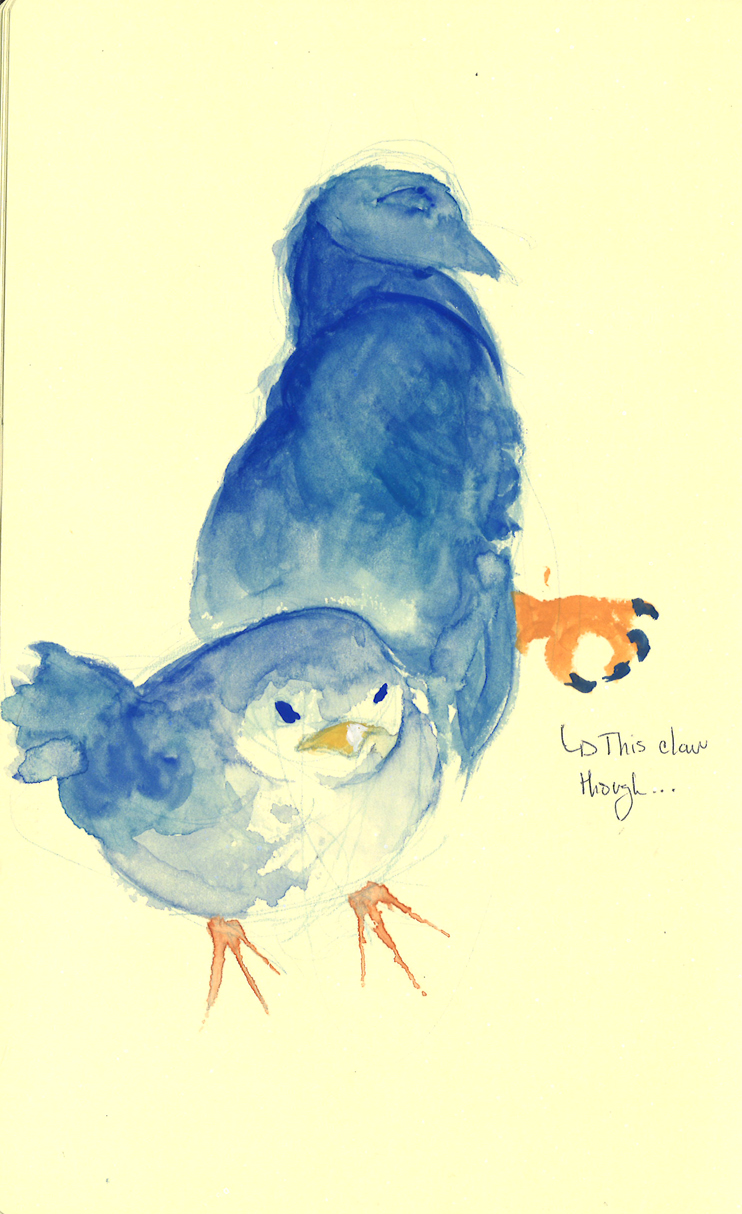 ↳ This claw
though...